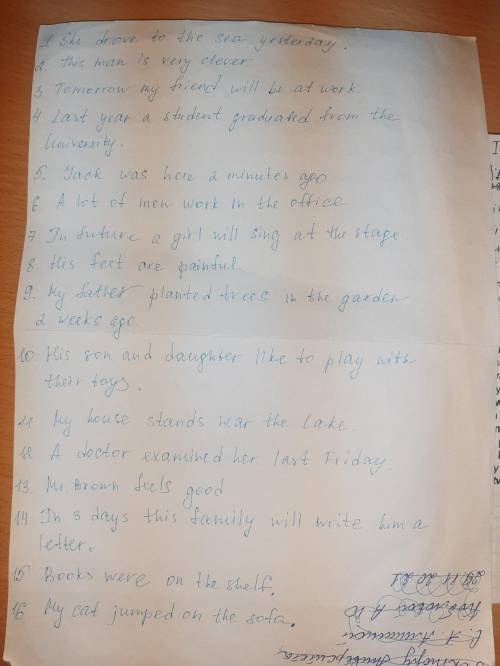 1 She drove to the sea yesterday.
2. This man is very clever.
3 Tomorrow my friend will be at work.
4 Last year a student graduated from the
University.
5. Jack was here 2 minutes ago
6 A lot of men work in the office
7 In future a girl will sing at the stage
8 His feet are painful.
9. My father planted trees in the garden
2 weeks ago.
10. His son and daughter like to play with
their toys.
11. My house stands near the lake.
12 A doctor examined her last Friday.
13. Mr. Brown feels good
14 In 3 days this family will write him a
letter.
15 Books were on the shelf.
16 My cat jumped on the sofa.